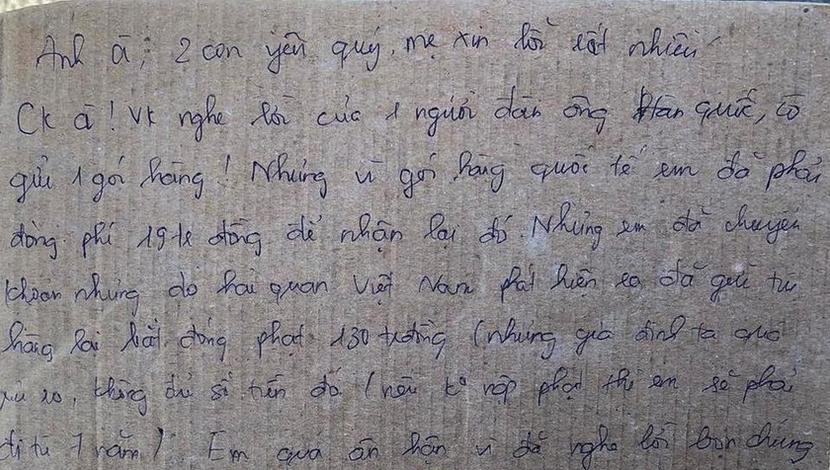 Anh à, 2 con yêu quý, mẹ xin lỗi rất nhiều
Ck à! Vk nghe lời của 1 người đàn ông Hàn quốc, có
gửi 1 gói hàng! Nhưng vì gói hàng quốc tế em đã phải
đóng phí 19tr đồng để nhận lại đó. Nhưng em đã chuyển
khoản nhưng do hải quan Việt Nam phát hiện ra đã gửi từ
hàng lại bắt đóng phạt 130 tr đồng (nhưng gia đình ta quá
rủi ro, không đủ số tiền đó (nếu k nộp phạt thì em sẽ phải
đi tù 7 năm). Em quá ân hận vì đã nghe lời bọn chúng